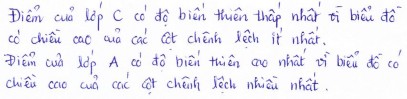 Điểm cuả lớp C có độ biến thiên thấp nhất vì biểu đồ
có chiều cao cuả các cột chênh lệch ít nhất.
Điểm cuả lớp A có độ biến thiên cao nhất vì biểu đồ có
chiều cao cuả các cột chênh lệch nhiều nhất.